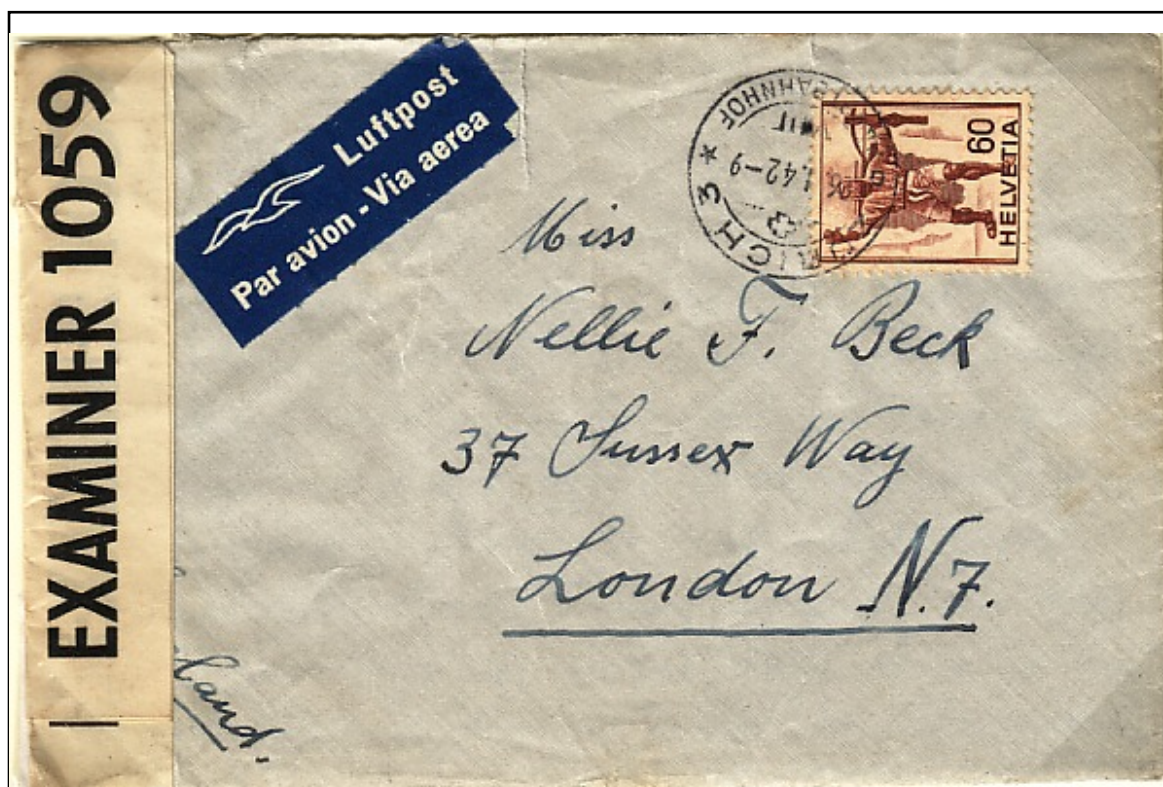 EXAMINER 1059
Luftpost
Par avion - Via aerea
60
HELVETIA
Miss
Nellie F. Beck
37 Sussex Way
London N.7.